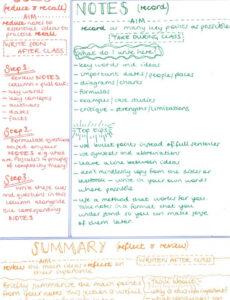 (reduce & recall)
AIM
reduce notes to
essential ideas to
practise recall
WRITE SOON
AFTER CLASS
Step 1
Review NOTES
column + pull out:
- key words
- key concepts
- authors
- dates
- facts
Step 2
Formulate questions
based on your
NOTES e.g. what
are
of composing theory?
- Write these
questions in this
column alongside
the corresponding
NOTES
NOTES (record)
AIM
record as many key points as possible
TAKE DURING CLASS
What do I write here?
- key words and ideas
- important dates/people/places
- diagrams/charts
- formulas
- examples/case studies
- critique - strengths/limitations
Top tips
- use bullet points instead of full sentences
- use symbols and abbreviations
- leave a line between ideas
- don't mindlessly copy from the slides or
textbook - write in your own words
where possible
- use a method that works for you.
Take notes in a format that you
understand so you can make sense
of them later.
SUMMARY (reflect & review)
AIM
WRITTEN AFTER CLASS
review the main ideas + reflect on
their importance
Briefly summarise the main points
from your notes